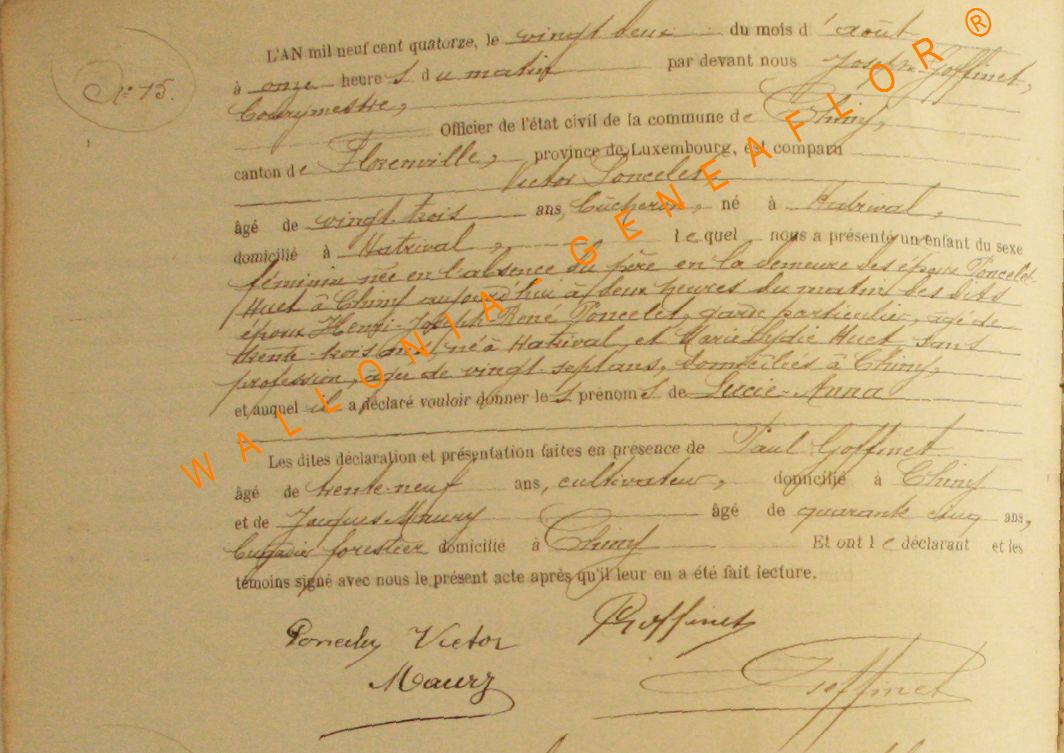 L'AN mil neuf cent quatorze, le vingt deux du mois d'août
N° 15.
à onze heures du matin par devant nous Joseph Goffinet,
Bourgmestre,
Officier de l'état civil de la commune de Chiny,
canton de Florenville, province de Luxembourg, est comparu
Victor Poncelet
âgé de vingt-trois ans, Bûcheron, né à Hatrival,
domicilié à Hatrival, lequel nous a présenté un enfant du sexe
féminin née en l'absence du père en la demeure des époux Poncelet-
Huet à Chiny aujourd'hui à deux heures du matin des dits
époux Henri-Joseph-René Poncelet, garde particulier, âgé de
trente-trois ans, né à Hatrival, et Marie Lydie Huet, sans
profession, âgée de vingt-sept ans, domiciliés à Chiny,
et auquel il a déclaré vouloir donner les prénoms de Lucie-Anna
Les dites déclaration et présentation faites en présence de Paul Goffinet
âgé de trente-neuf ans, cultivateur, domicilié à Chiny
et de Jacques Maury âgé de quarante cinq ans,
forestier domicilié à Chiny Et ont le déclarant et les
témoins signé avec nous le présent acte après qu'il leur en a été fait lecture.
Poncelet Victor PGoffinet
Maury JGoffinet
WALLONIA-GENEAFLOR®